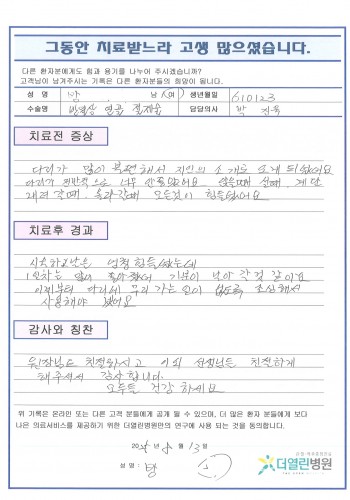 그동안 치료받느라 고생 많으셨습니다.
다른 환자분에게도 힘과 용기를 나누어 주시겠습니까?
고객님이 남겨주시는 기록은 다른 환자분들의 희망이 됩니다.
성 명 남 여 생년월일 610123
수술명 절제술 담당의사 박
치료전 증상
다리가 많이 불편해서 지인의 소개로 오게 되었어요
다리가 전반적으로 너무 안좋았어요 앉을때 설때, 계단
내려갈때, 올라갈때 모든것이 힘들었어요
치료후 경과
시술하고 난 엄청 힘들었는데
기분이 날아 갈것 같아요
이제부터 다리에 무리 가는 일이 없도록 조심해서
사용해야 겠어요
감사와 칭찬
원장님도 친절하시고 선생님들 친절하게
해주셔서 감사합니다.
모두들 건강 하세요
위 기록은 온라인 또는 다른 고객 분들에게 공개 될 수 있으며, 더 많은 환자 분들에게 보다
나은 의료서비스를 제공하기 위한 더열린병원만의 연구에 사용 되는 것을 동의합니다.
20 년 월 13일
성 명 :
더열린병원